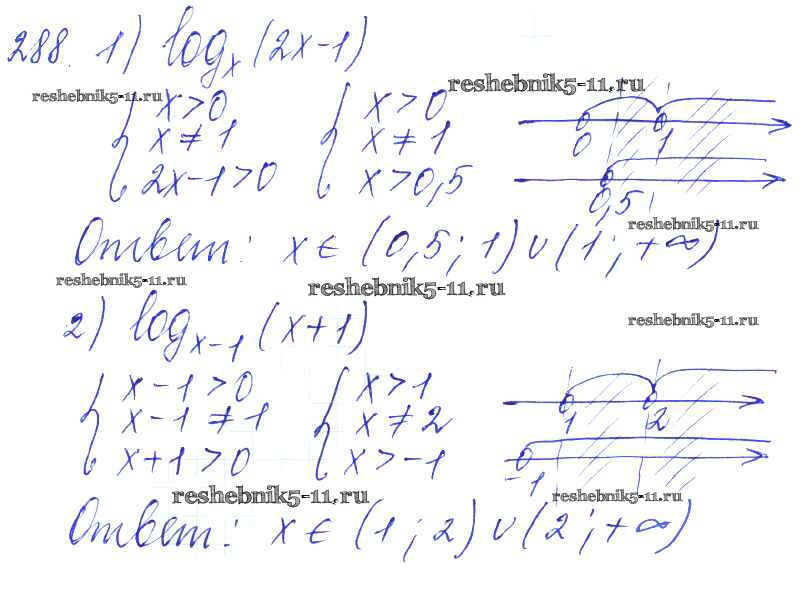 288. 1) log_x (2x-1)
reshebnik5-11.ru
reshebnik5-11.ru
{ x>0 { x>0
x≠1 x≠1
2x-1>0 x>0,5
0 1
0,5
reshebnik5-11.ru
Ответ: x∈(0,5;1)∪(1;+∞)
reshebnik5-11.ru
reshebnik5-11.ru
2) log_{x-1} (x+1)
reshebnik5-11.ru
{ x-1>0 { x>1
x-1≠1 x≠2
x+1>0 x>-1
1 2
-1
reshebnik5-11.ru
reshebnik5-11.ru
Ответ: x∈(1;2)∪(2;+∞)